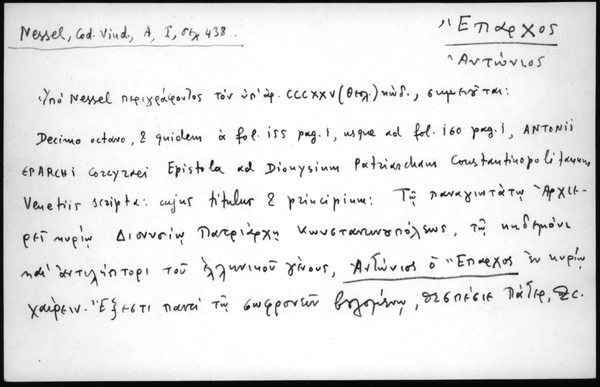 Nessel, Cod. Vind., A, I, σελ 438.
Ἔπαρχος
Ἀντώνιος
Ὑπὸ Nessel περιγράφοντος τὸν ὑπ' ἀρ. CCCXXV (Θεολ.) κώδ., σημειοῦται:
Decimo octavo, & quidem à fol. 155 pag. 1, usque ad fol. 160 pag. 1, ANTONII
EPARCHI Corcyraei Epistola ad Dionysium Patriarcham Constantinopolitanum
Venetiis scripta: cujus titulus & principium: Τῷ παναγιωτάτῳ Ἀρχιε-
ρεῖ κυρίῳ Διονυσίῳ Πατριάρχῃ Κωνσταντινουπόλεως, τῷ κηδεμόνι
καὶ ἀντιλήπτορι τοῦ ἑλληνικοῦ γένους, Ἀντώνιος ὁ Ἔπαρχος ἐν κυρίῳ
χαίρειν. Ἔξεστι παντὶ τῷ σωφρονεῖν βουλομένῳ, θεσπέσιε Πάτερ, &c.